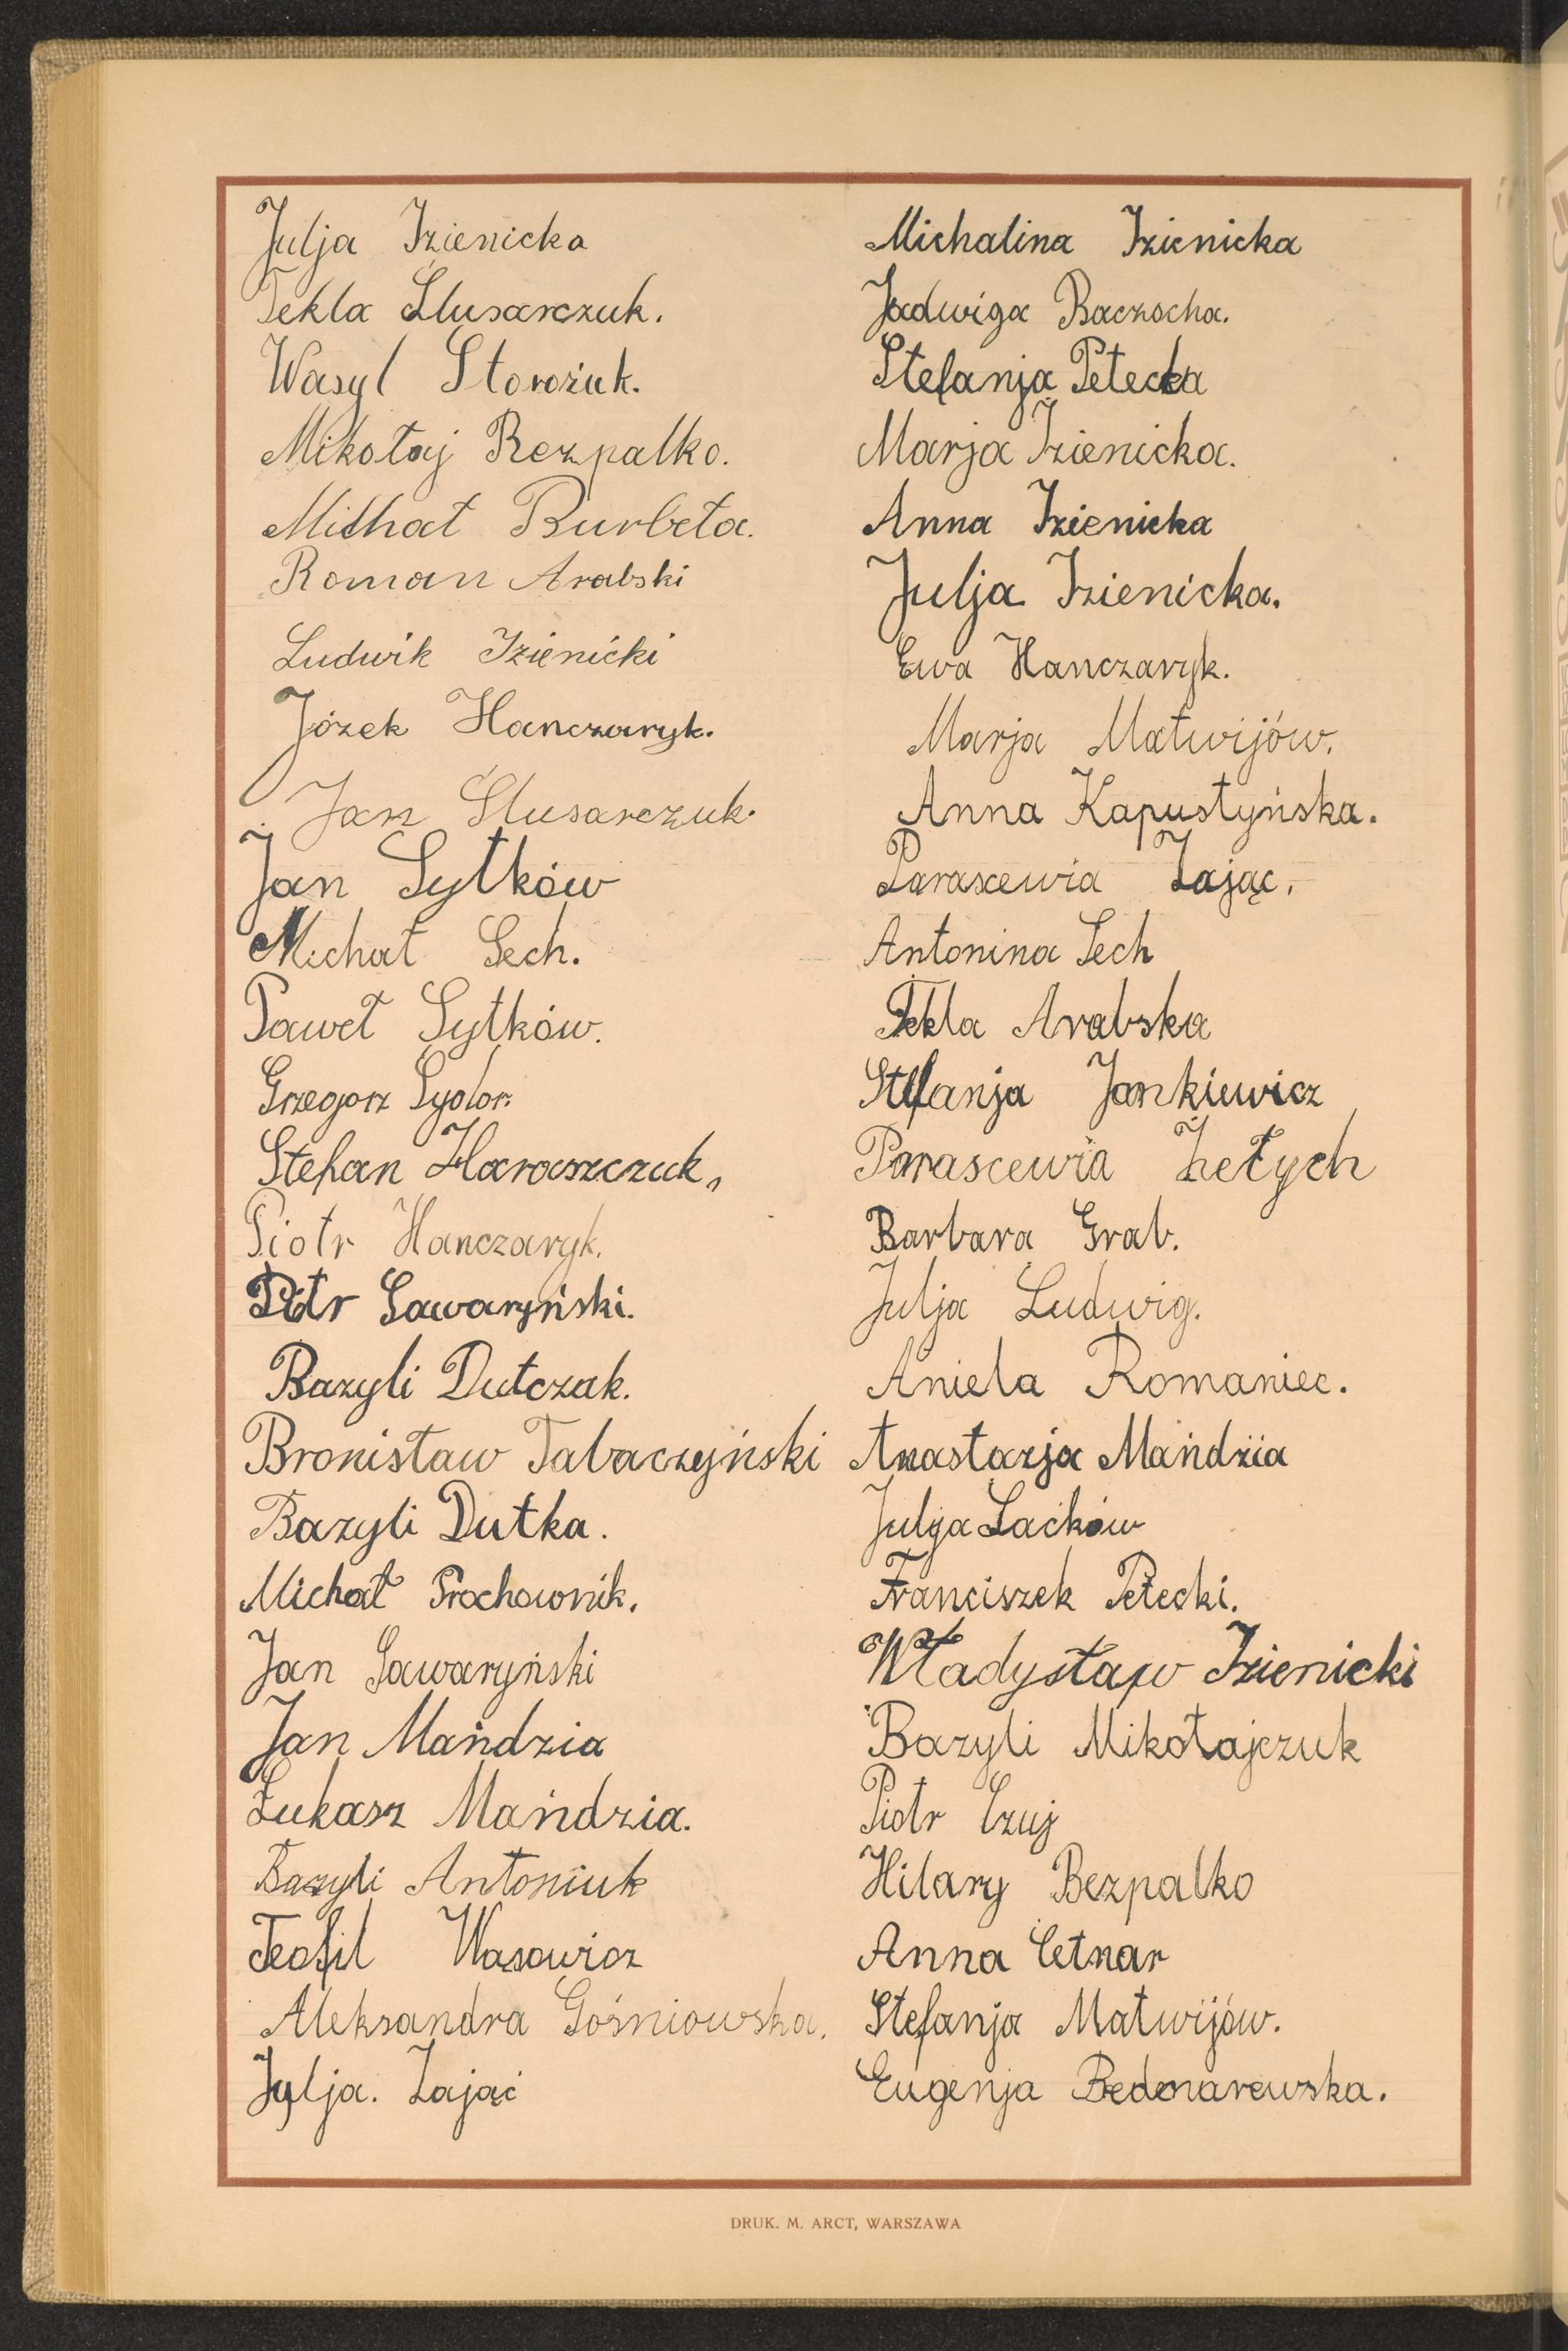 Julja Izienicka
Tekla Ślusarczuk.
Wasyl Storożuk.
Mikołaj Bezpalko.
Michał Burbeła.
Roman Arabski
Ludwik Izienicki
Józek Hanczaryk.
Jan Ślusarczuk.
Jan Sytków
Michał Sech.
Paweł Sytków.
Grzegorz Sydor.
Stefan Haraszczuk,
Piotr Hanczaryk.
Piotr Sawaryński.
Bazyli Dutczak.
Bronisław Tabaczyński
Bazyli Dutka.
Michał Prochownik.
Jan Sawaryński
Jan Mańdzia
Łukasz Mańdzia.
Bazyli Antoniuk
Teofil Wasowicz
Aleksandra Gośniowska.
Julja. Zająć
Michalina Izienicka
Jadwiga Baczocha.
Stefanja Petecka
Marja Izienicka.
Anna Izienicka
Julja Izienicka.
Ewa Hanczaryk.
Marja Matwijów.
Anna Kapustyńska.
Parascewia Zając.
Antonina Sech
Tekla Arabska
Stefanja Jankiewicz
Parascewia Żełych
Barbara Grab.
Julja Ludwig.
Aniela Romaniec.
Anastazja Mańdzia
Julja Laćków
Franciszek Petecki.
Władysław Izienicki
Bazyli Mikołajczuk
Piotr Czuj
Hilary Bezpalko
Anna Cetnar
Stefanja Matwijów.
Eugenja Bednarewska.
DRUK. M. ARCT, WARSZAWA